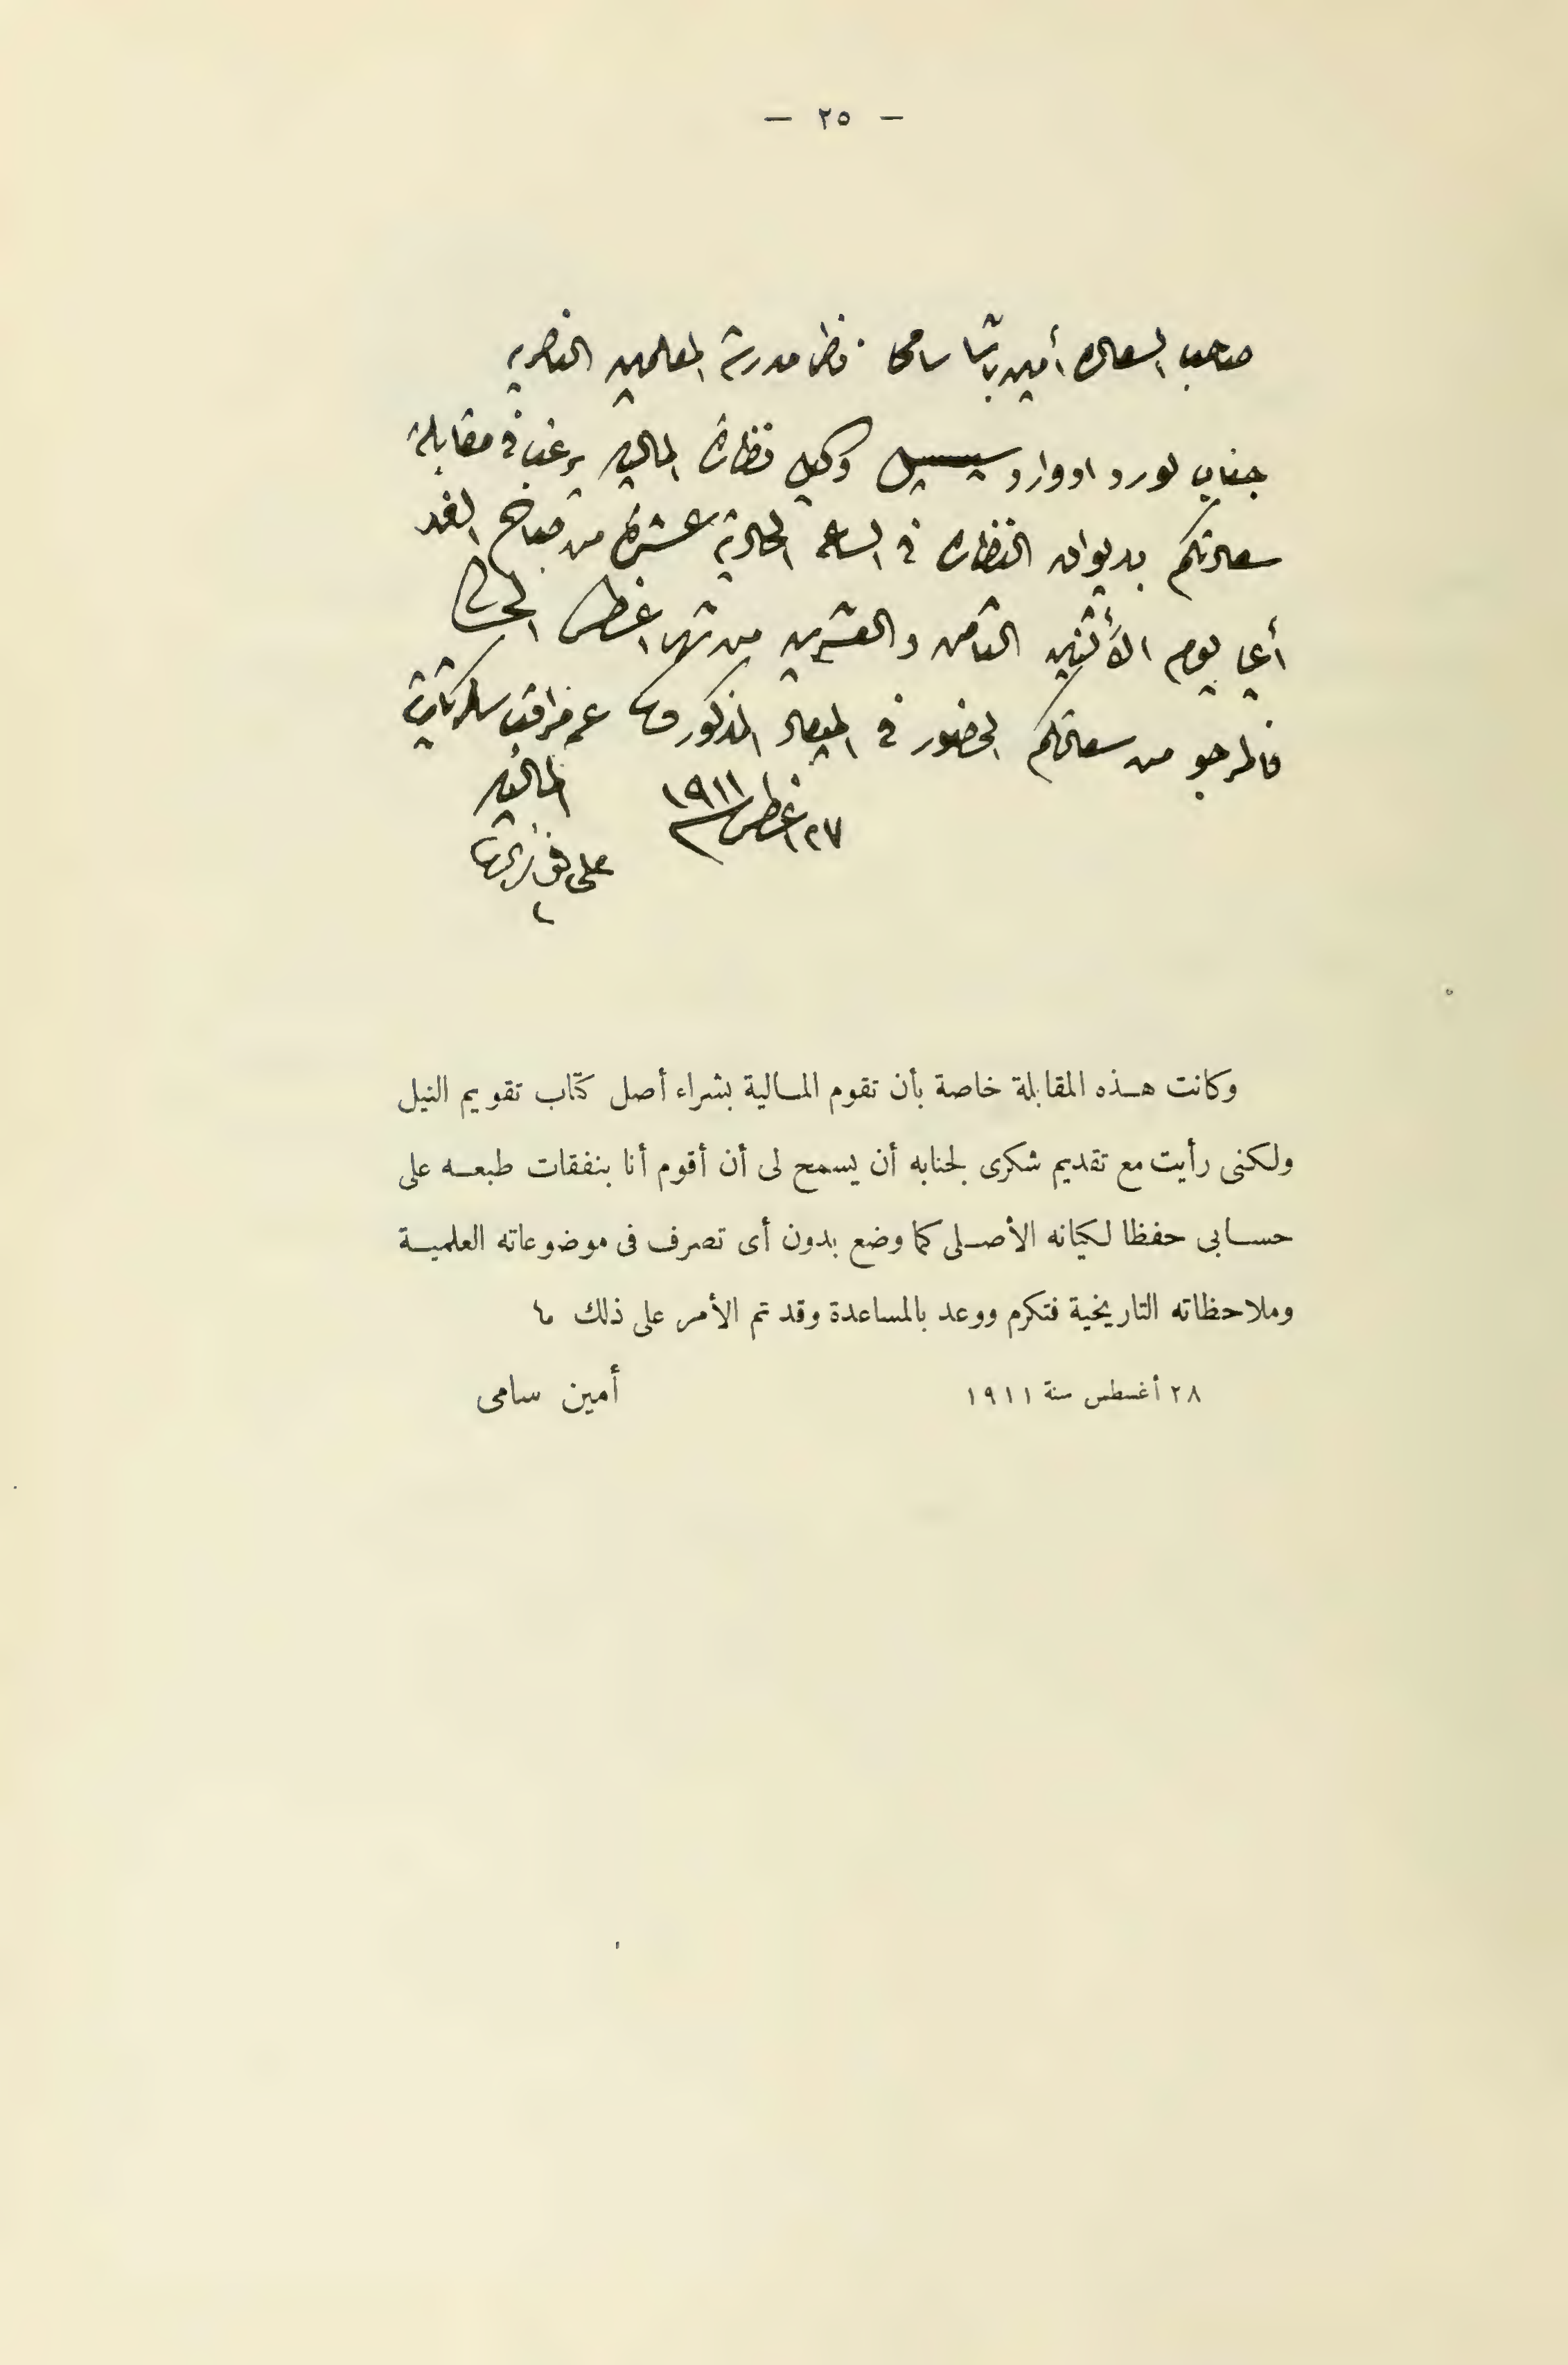 — ٢٥ —
صاحب السعادة أمين باشا سامى ناظر مدرسة المعلمين الناصرية
جناب لورد ادوارد سيسيل وكيل نظارة المالية يرغب فى مقابلة
سعادتكم بديوان النظارة فى الساعة الحادية عشرة من صباح الغد
أى يوم الأثنين الثامن والعشرين من شهر اغسطس الجارى
فالمرجو من سعادتكم الحضور فى الميعاد المذكور عن مراقب سكرتارية
المالية
٢٧ اغسطس ١٩١١
على فوزى
وكانت هـذه المقابلة خاصة بأن تقوم المـالية بشراء أصل كتاب تقويم النيل
ولكنى رأيت مع تقديم شكرى لجنابه أن يسمح لى أن أقوم أنا بنفقات طبعـه على
حسـابى حفظا لكيانه الأصـلى كما وضع بدون أى تصرف فى موضوعاته العلميـة
وملاحظاته التاريخية فتكرم ووعد بالمساعدة وقد تم الأمر على ذلك ما
٢٨ أغسطس سنة ١٩١١ أمين سامى